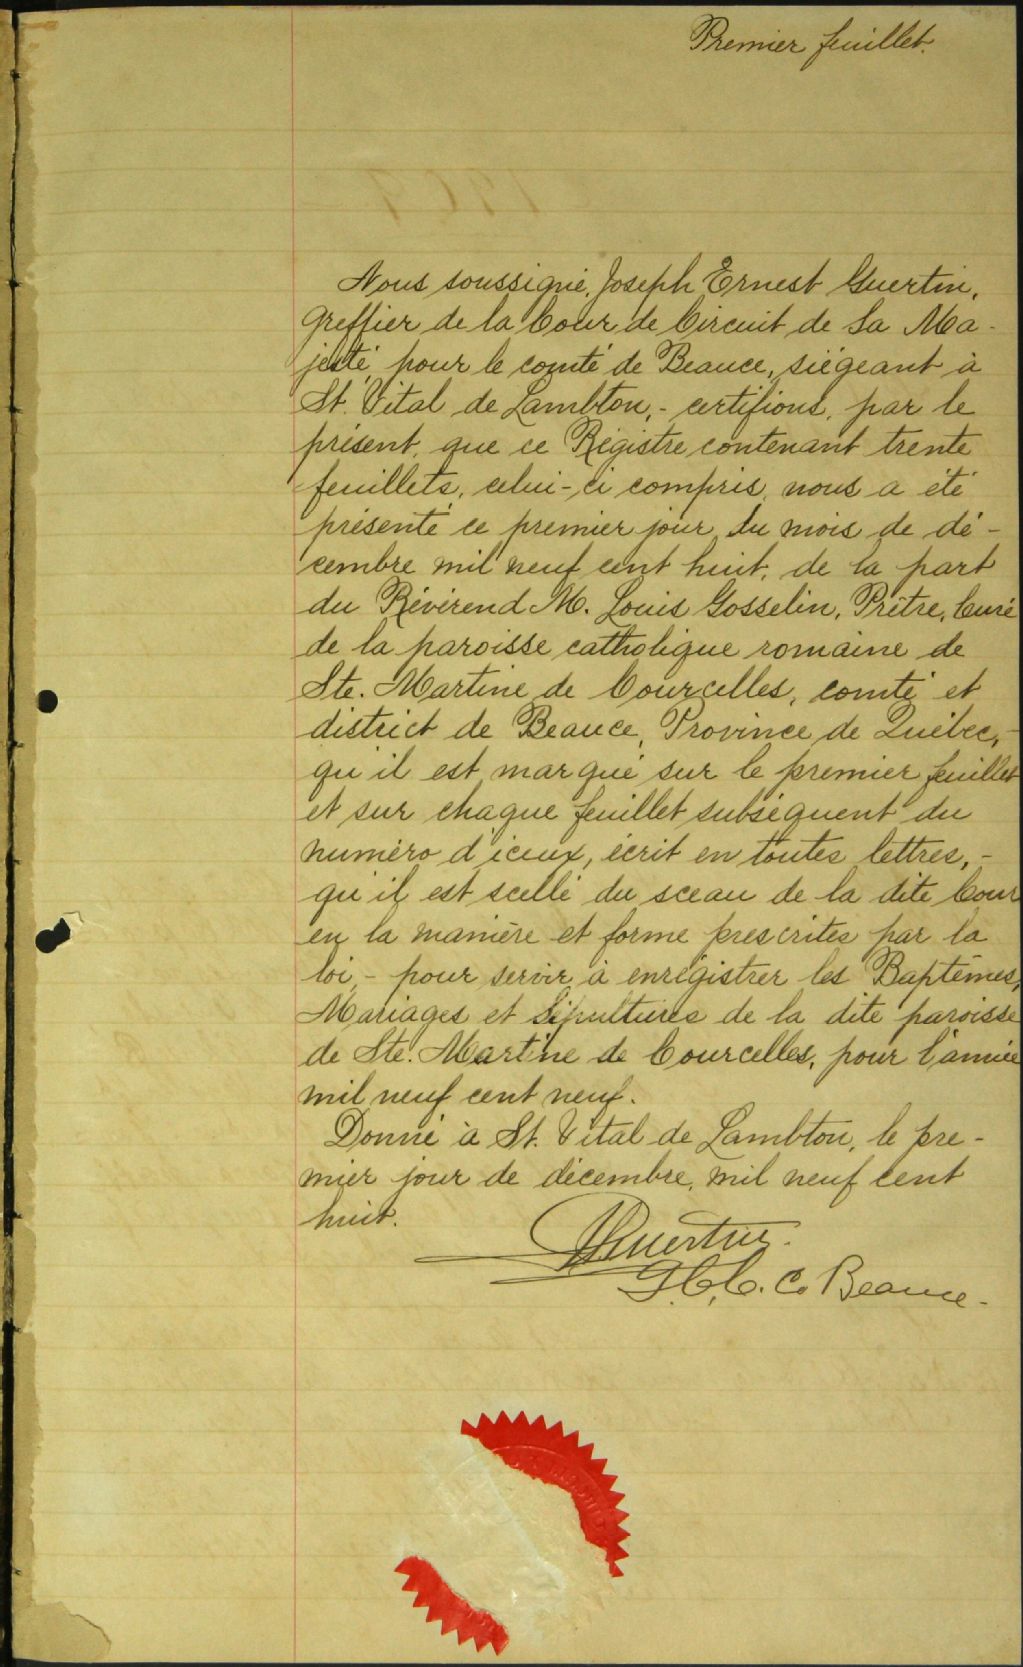 Premier feuillet.
Nous soussigné, Joseph Ernest Guertin,
Greffier de la Cour de Circuit de Sa Ma-
jesté, pour le comté de Beauce, siégeant à
St. Vital de Lambton, - certifions, par le
présent, que ce Régistre contenant trente
feuillets, celui-ci compris, nous a été
présenté ce premier jour du mois de dé-
cembre mil neuf cent huit, de la part
du Révérend M. Louis Gosselin, Prêtre, Curé
de la paroisse catholique romaine de
Ste. Martine de Courcelles, comté et
district de Beauce, Province de Québec, -
qu'il est marqué sur le premier feuillet
et sur chaque feuillet subséquent du
numéro d'iceux, écrit en toutes lettres, -
qu'il est scellé du sceau de la dite Cour
en la manière et forme prescrites par la
loi, - pour servir à enrégistrer les Baptêmes,
Mariages et Sépultures de la dite paroisse
de Ste. Martine de Courcelles, pour l'année
mil neuf cent neuf.
Donné à St. Vital de Lambton, le pre-
mier jour de décembre, mil neuf cent
huit.
Guertin.
G.C.C. C. Beauce.